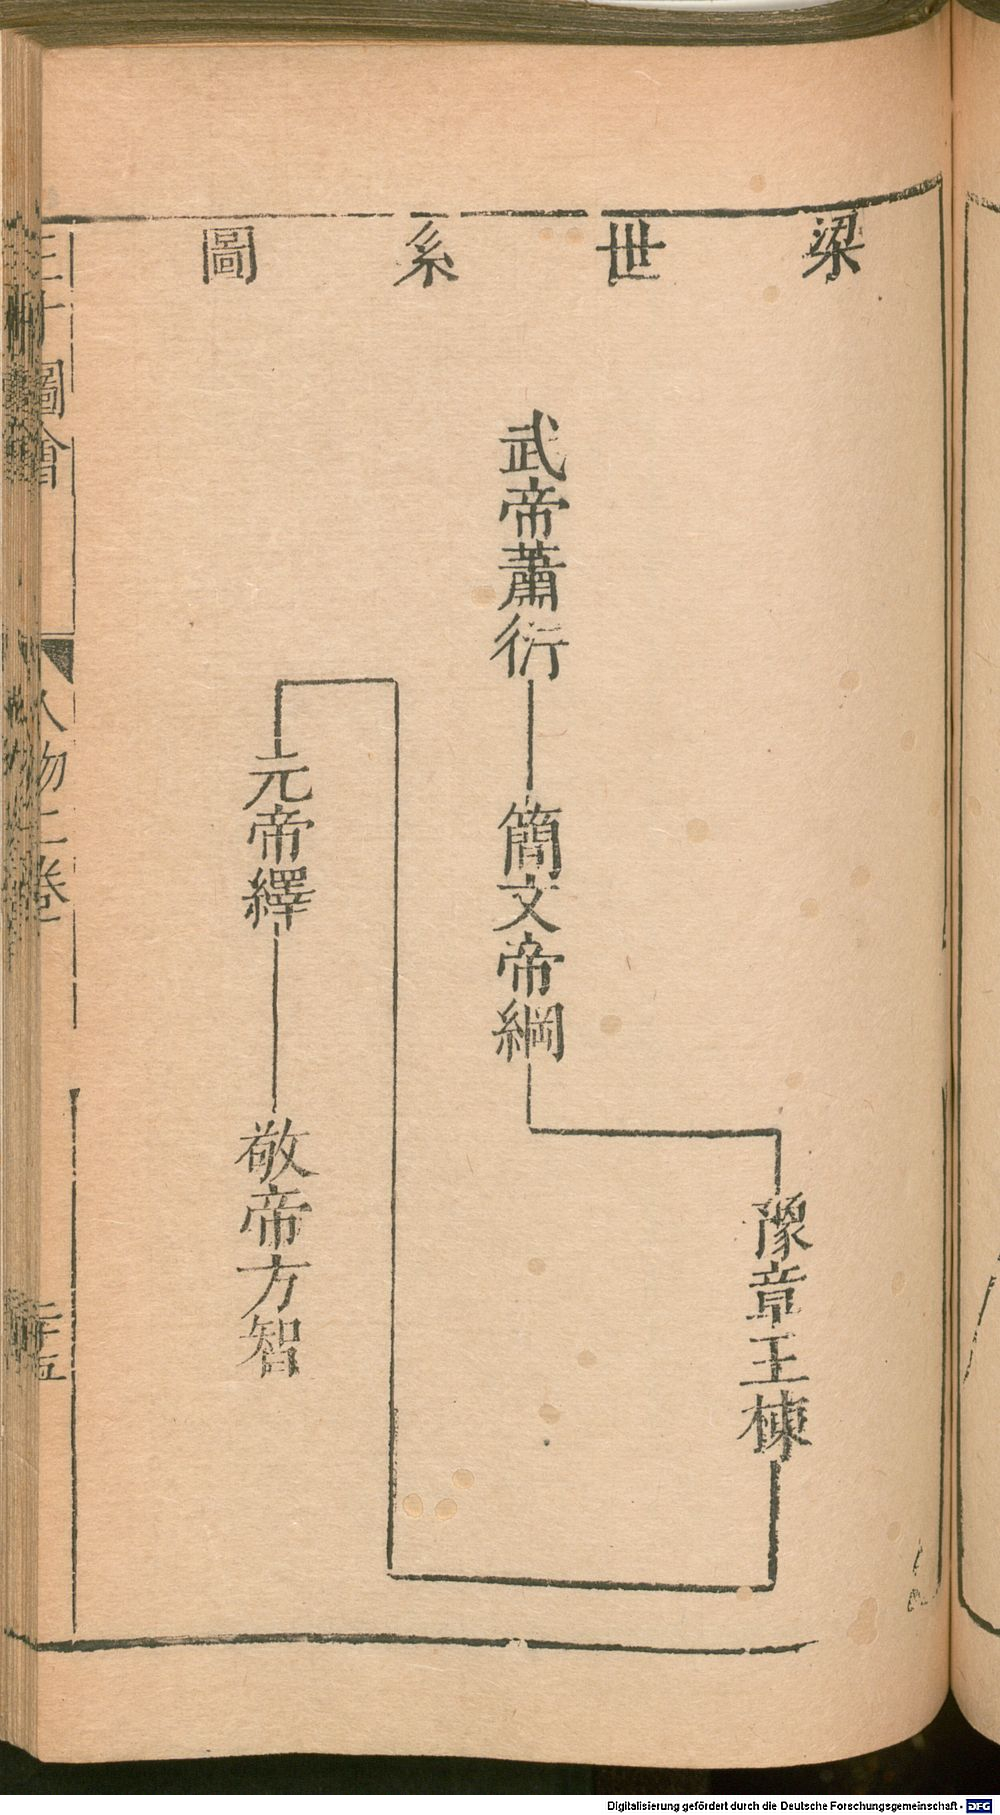 梁世系圖
武帝蕭衍
簡文帝綱
豫章王棟
元帝繹
敬帝方智
三才圖會
人物二卷
二十五
Digitalisierung gefördert durch die Deutsche Forschungsgemeinschaft - DFG